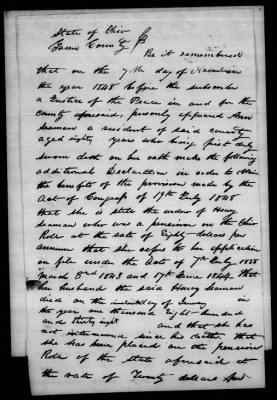 State of Ohio
County
Be it remembered
that on the 7th day of November
the year 1848 before the subscriber
a Justice of the Peace in and for the
county aforesaid, personly appeared Ann
Seaman a resident of said county
aged eighty years who being first duly
sworn doth on her oath make the following
additional Declaration in order to obtain
the benefits of the provision made by the
Act of Congress of 19th July 1848
that she is still the widow of Henry
Seaman who was a pensioner on the Ohio
Roll at the rate of Eighty dollars per
annum that she refers to her application
on file under the Acts of 7th July 1838
March 3rd 1843 and 17th June 1844 that
her husband the said Henry Seaman
died on the day of in
the year one thousand Eight hundred
and thirty eight and that she has
not intermarried since his death that
she has been placed on the pension
Roll of the state aforesaid at
the rate of Twenty dollars